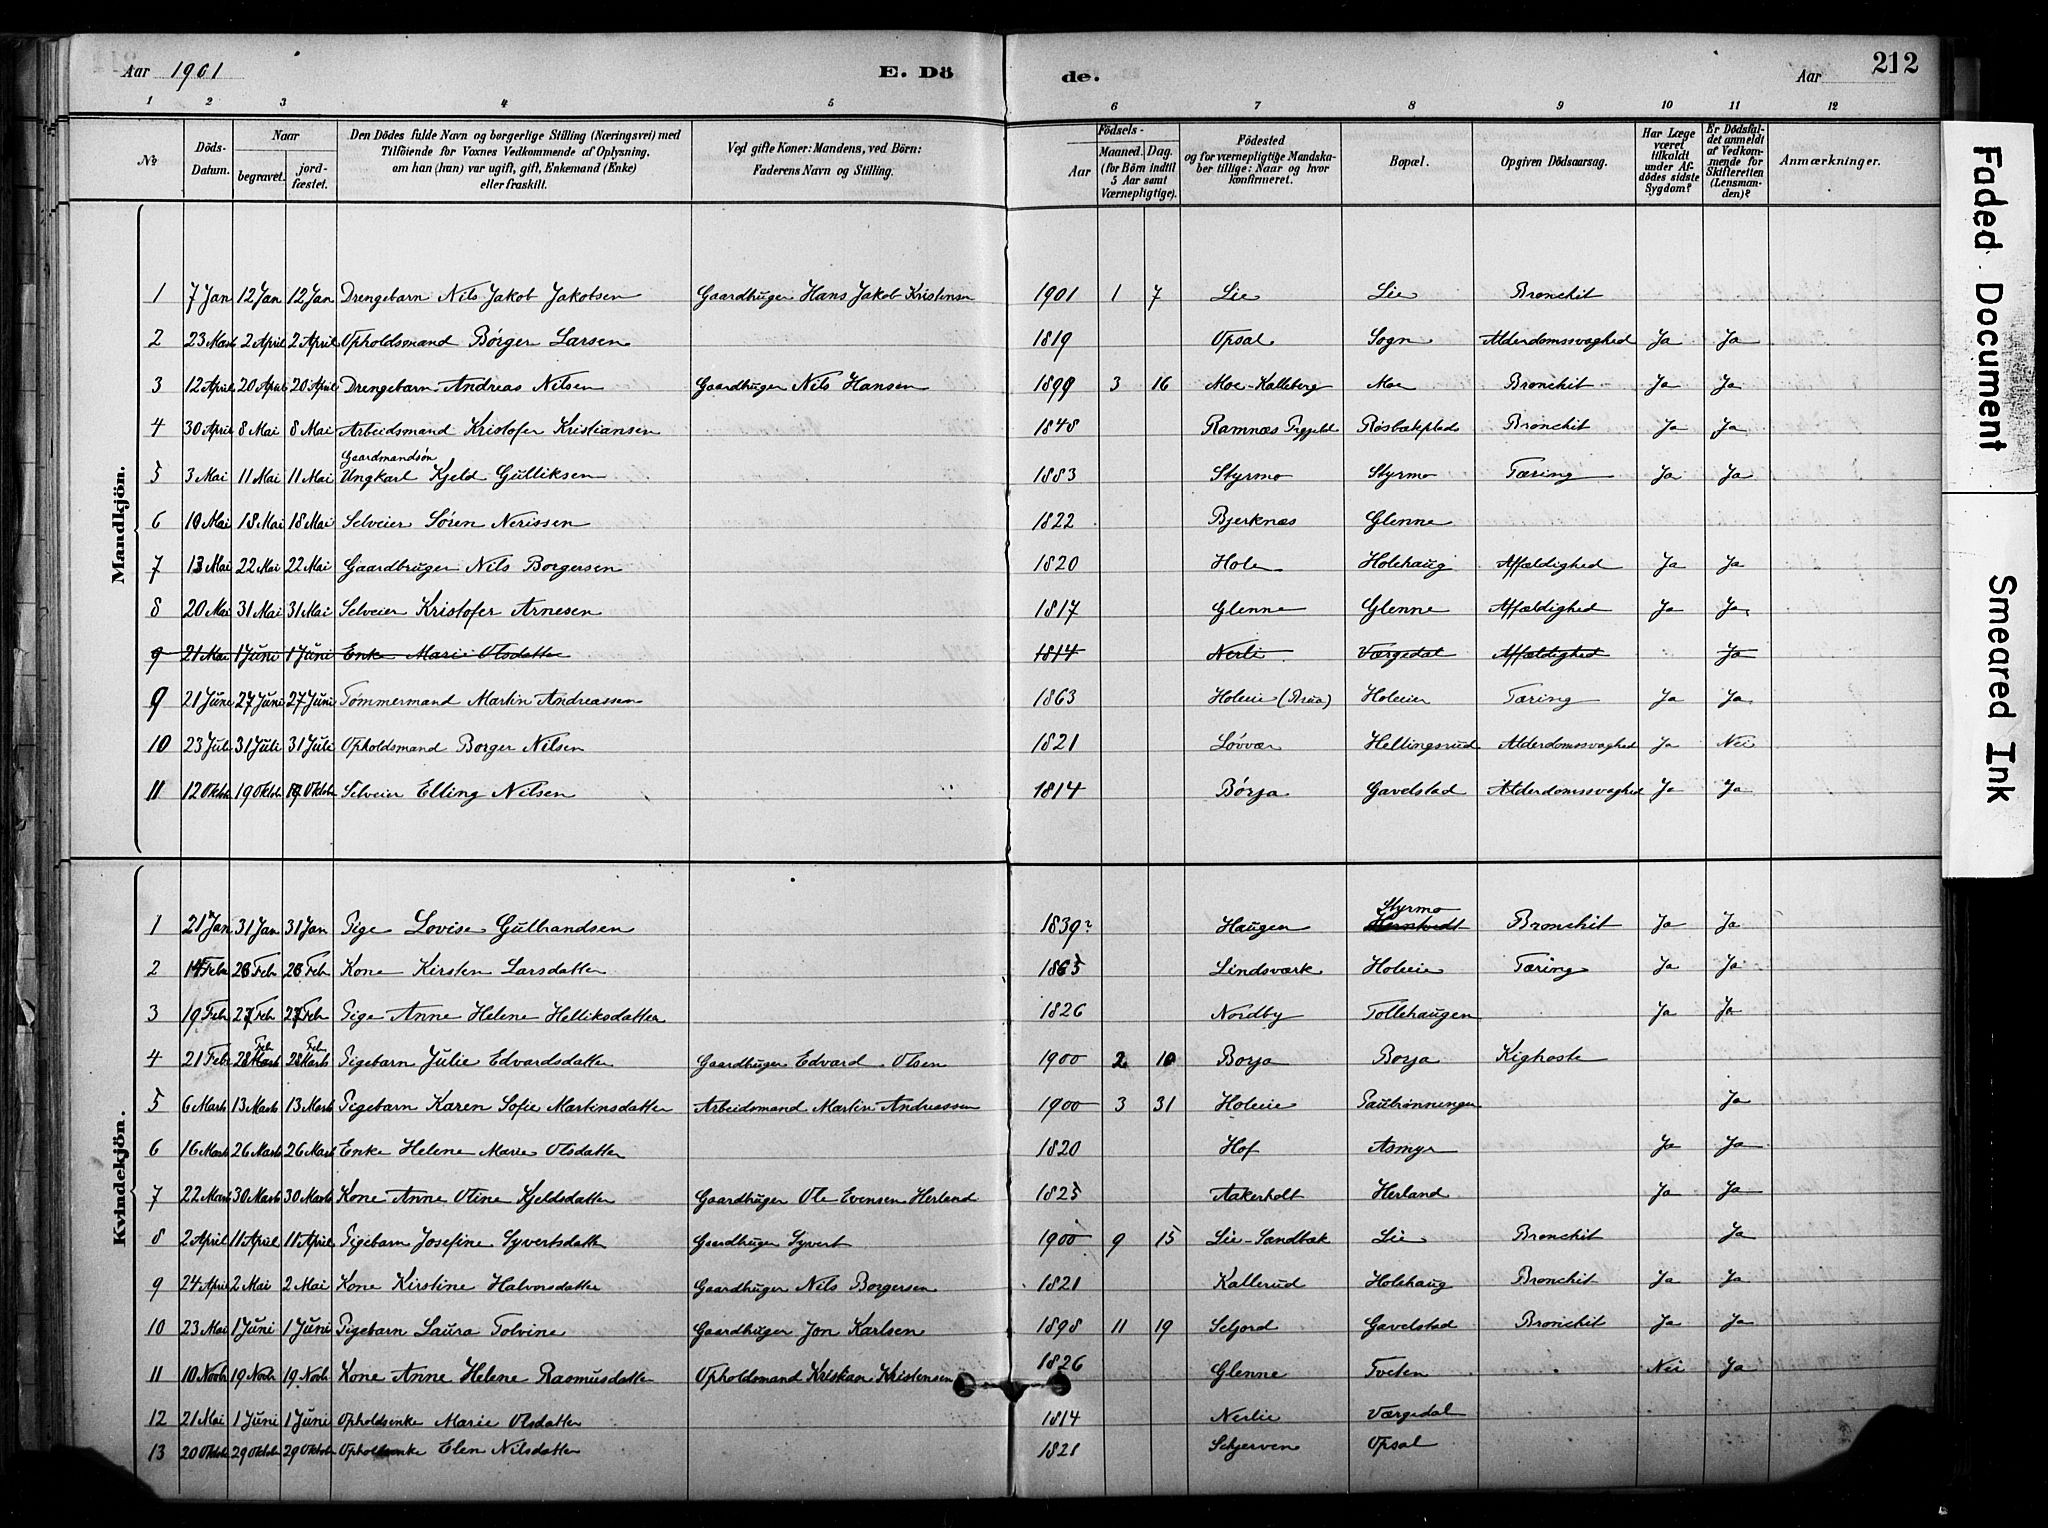 Aar 1901 E. Dö de. Aar 212
1 2 3 4 5 6 7 8 9 10 11 12
No. Döds-Datum. Naar begravet. jord-fæstet. Den Dödes fulde Navn og borgerlige Stilling (Næringsvei) med Tilföiende for Voxnes Vedkommende af Oplysning, om han (hun) var ugift, gift, Enkemand (Enke) eller fraskilt. Ved gifte Koner: Mandens, ved Börn: Faderens Navn og Stilling. Födsels- Aar Maaned. Dag. (for Börn indtil 5 Aar samt Værnepligtige). Födested og for værnepligtige Mandska-ber tillige: Naar og hvor konfirmeret. Bopæl. Opgiven Dödsaarsag. Har Læge været tilkaldt under Af-dödes sidste Sygdom? Er Dödsfal-det anmeldt af Vedkom-mende for Skifteretten (Lensman-den)? Anmærkninger.
Mandkjön.
1 7 Jan 12 Jan 12 Jan Drengebarn Nils Jakob Jakobsen Gaardbruger Hans Jakob Kristensen 1901 1 7 Lie Lie Bronchit
2 23 Marts 2 April 2 April Opholdsmand Börger Larsen 1819 Opsal Sogn Alderdomssvaghed Ja Ja
3 12 April 20 April 20 April Drengebarn Andreas Nilsen Gaardbruger Nils Hansen 1899 3 16 Moe-Kalleberg Moe Bronchit Ja Ja
4 30 April 8 Mai 8 Mai Arbeidsmand Kristofer Kristiansen 1848 Ramnæs Prgjeld Røsbækplads Bronchit Ja Ja
Gaardmandsøn
5 3 Mai 11 Mai 11 Mai Ungkarl Kjeld Gulliksen 1883 Styrmo Styrmo Tæring Ja Ja
6 10 Mai 18 Mai 18 Mai Selveier Sören Nerissen 1822 Bjerknæs Glenne
7 13 Mai 22 Mai 22 Mai Gaardbruger Nils Borgersen 1820 Hole Holehaug Affældighed Ja Ja
8 20 Mai 31 Mai 31 Mai Selveier Kristofer Arnesen 1817 Glenne Glenne Affældighed Ja Ja
9 21 Mai 1 Juni 1 Juni Enke Marie Olsdatter 1814 Nerli Værgedal Affældighed Ja
9 21 Juni 27 Juni 27 Juni Tömmermand Martin Andreassen 1863 Holeeie (Brua) Holeeier Tæring Ja Ja
10 23 Juli 31 Juli 31 Juli Opholdsmand Borger Nilsen 1821 Lövvær Hellingsrud Alderdomssvaghed Ja Nei
11 12 Oktbr 19 Oktbr 19 Oktbr Selveier Elling Nilsen 1814 Børja Gavelstad Alderdomssvaghed Ja Ja
Kvindekjön.
Styrmo
1 21 Jan 31 Jan 31 Jan Pige Lovise Gulbrandsen 1839? Haugen Bronchit Ja Ja
2 14 Febr 26 Febr 26 Febr Kone Kirsten Larsdatter 1865 Lindsværk Holeeie Tæring Ja Ja
3 19 Febr 27 Febr 27 Febr Pige Anne Helene Helliksdatter 1826 Nordby Tollehaugen Ja Ja
Feb Feb
4 21 Febr 28 Marts 28 Marts Pigebarn Julie Edvardsdatter Gaardbruger Edvard Olsen 1900 2 10 Borja Borja Kighoste
5 6 Marts 13 Marts 13 Marts Pigebarn Karen Sofie Martinsdatter Arbeidsmand Martin Andreassen 1900 3 31 Holeeie Paulrönningen Ja
6 16 Marts 26 Marts 26 Marts Enke Helene Marie Olsdatter 1820 Hof Asmyr Ja Ja
7 22 Marts 30 Marts 30 Marts Kone Anne Oline Kjeldsdatter Gaardbruger Ole Evensen Herland 1825 Aakerholt Herland Ja Ja
8 2 April 11 April 11 April Pigebarn Josefine Syvertsdatter Gaardbruger Syvert 1900 9 15 Lie-Sandbæk Lie Bronchit Ja
9 24 April 2 Mai 2 Mai Kone Kirstine Halvorsdatter Gaardbruger Nils Borgersen 1821 Kallerud Holehaug Bronchit Ja Ja
10 23 Mai 1 Juni 1 Juni Pigebarn Laura Tolvine Gaardbruger Jon Karlsen 1898 11 19 Seljord Gavelstad Bronchit Ja Ja
11 10 Novbr 19 Novbr 19 Novbr Kone Anne Helene Rasmusdatter Opholdsmand Kristian Kristensen 1826 Glenne Tveten Nei Ja
12 21 Mai 1 Juni 1 Juni Opholdsenke Marie Olsdatter 1814 Nerlie Værgedal
13 20 Oktbr 29 Oktbr 29 Oktbr Opholdsenke Elen Nilsdatter 1821 Skjerven Opsal
Faded Document
Smeared Ink